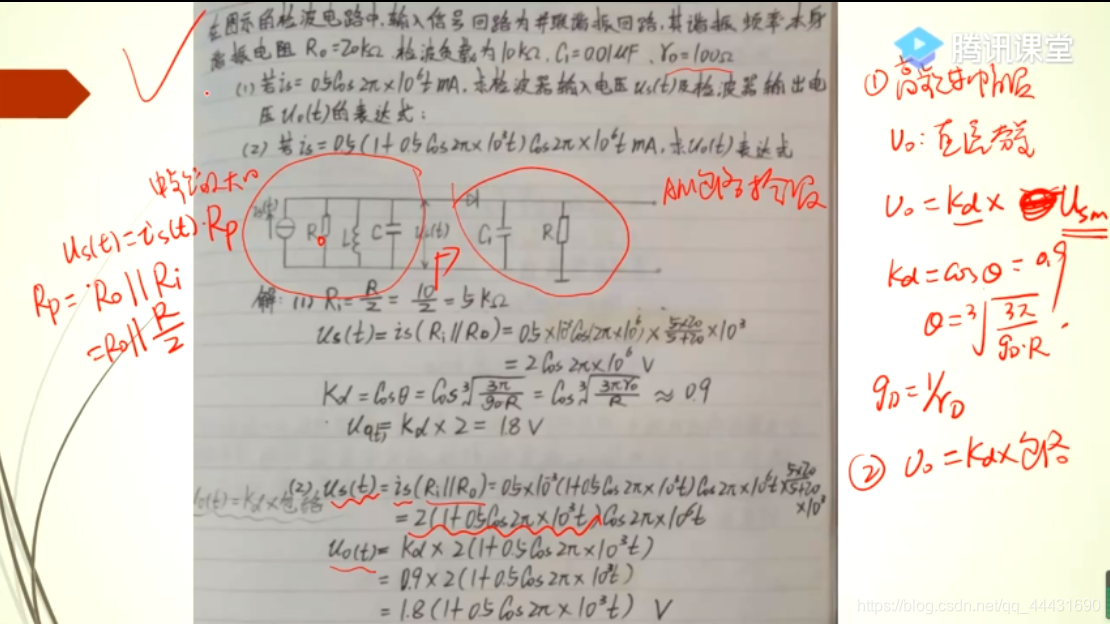 在图示的检波电路中,输入信号回路为并联谐振回路,其谐振频率本身
谐振电阻 R₀=20kΩ 检波负载为10kΩ, C₁=0.01μF, r₀=100Ω
(1) 若is=0.5Cos2π×10⁶t mA, 求检波器输入电压us(t)及检波器输出电
压u₀(t)的表达式;
(2) 若is=0.5(1+0.5Cos2π×10³t)Cos2π×10⁶t mA, 求u₀(t)表达式
us(t)
R₀
L
C
C₁
R
解: (1) Ri=R/2=10/2=5kΩ
us(t)=is(Ri//R₀)=0.5×10³Cos(2π×10⁶)×5×20/5+20×10³
=2Cos2π×10⁶ V
Kd=Cosθ=Cos∛3π/g₀R=Cos∛3πr₀/R≈0.9
u₀(t)=Kd×2=1.8V
(2) us(t)=is(Ri//R₀)=0.5×10⁻³(1+0.5Cos2π×10³t)Cos2π×10⁶t×5×20/5+20×10³
=2(1+0.5Cos2π×10³t)Cos2π×10⁶t
u₀(t)=Kd×2(1+0.5Cos2π×10³t)
=0.9×2(1+0.5Cos2π×10³t)
=1.8(1+0.5Cos2π×10³t) V
us(t)=is(t)·Rp
Rp=R₀//Ri
=R₀//R/2
AM包络检波
腾讯课堂
① 高频等幅波
U₀:直流
U₀=Kd×Usm
Kd=cosθ=0.9
θ=∛3π/g_D·R
g_D=1/r_D
② U₀=Kd×包络
https://blog.csdn.net/qq_44431690